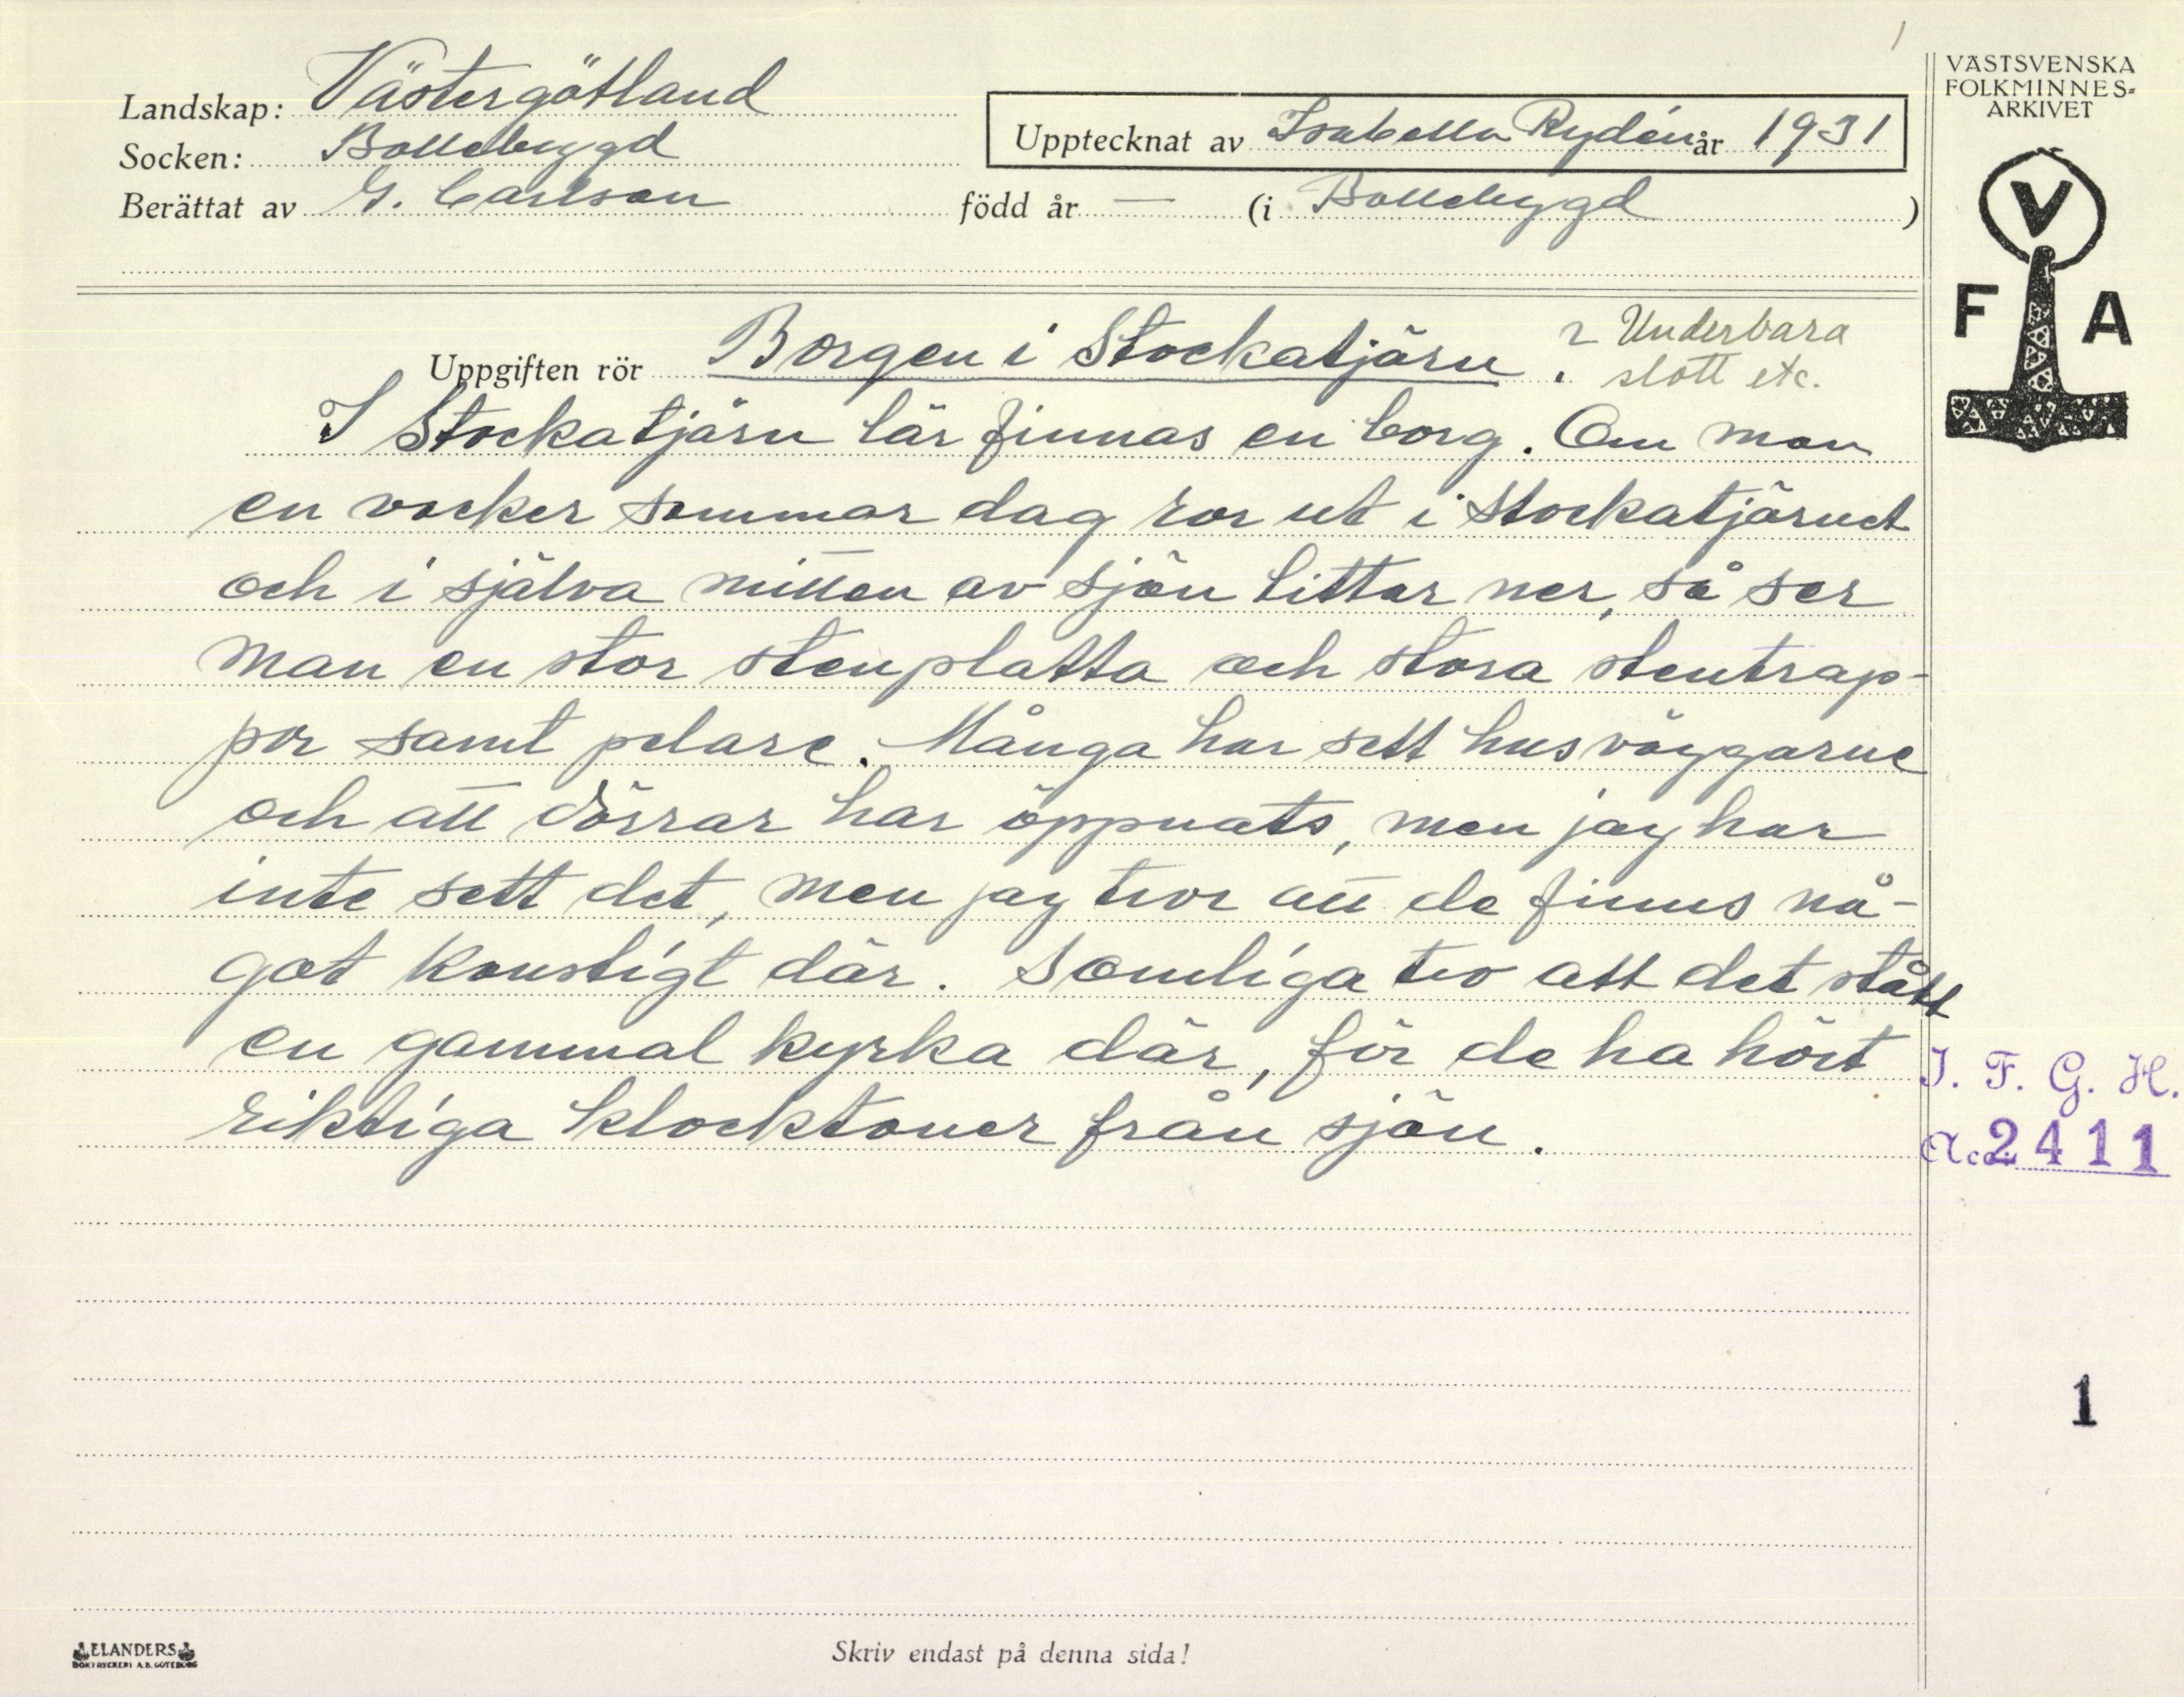 Landskap: Västergötland
Socken: Bollebygd
Berättat av G. Carlson född år — (i Bollebygd )
Upptecknat av Isabella Rydén år 1931
VÄSTSVENSKA
FOLKMINNES-
ARKIVET
V
F A
Uppgiften rör Borgen i Stockatjärn.
? Underbara
slott etc.
I Stockatjärn lär finnas en borg. Om man
en vacker sommar dag ror ut i Stockatjärnet
och i själva mitten av sjön tittar ner, så ser
man en stor stenplatta och stora stentrap-
por samt pelare. Många har sett husväggarne
och att dörrar har öppnats, men jag har
inte sett det, men jag tror att de finns nå-
got konstigt där. Somliga tro att det stått
en gammal kyrka där, för de ha hört
riktiga klocktoner från sjön.
I. F. G. H.
Acc. 2411
1
ELANDERS
BOKTRYCKERI A.B. GÖTEBORG
Skriv endast på denna sida!